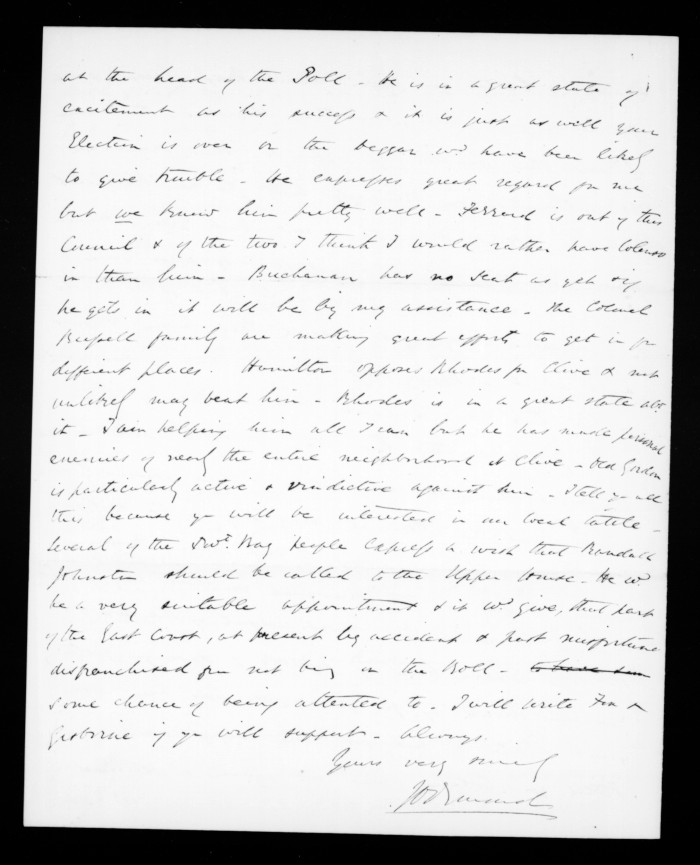 at the head of the Poll - He is in a great state of
excitement at his success & it is just as well your
Election is over or the beggar wd. have been likely
to give trouble - He expresses great regard for me
but we know him pretty well - Ferrerd is out of this
Council & of the two I think I would rather have Colenso
in than him - Buchanan has no seat as yet & if
he gets in it will be by my assistance - The Colonel
Russell family are making great efforts to get in for
different places. Hamilton opposes Rhodes for Clive & not
unlikely may beat him - Rhodes is in a great state abt.
it - I am helping him all I can but he has made personal
enemies of nearly the entire neighborhood at Clive - Old Gordon
is particularly active & vindictive against him - I tell you all
this because you will be interested in our local tattle -
Several of the Povt. Bay people express a wish that Randall
Johnston should be called to the Upper House - He wd.
be a very suitable appointment & it wd. give, that part
of the East Coast, at present by accident & past misfortune
disfranchised for not being on the Roll - to have some
some chance of being attended to - I will write Fox &
Gisborne if you will support - Always
Yours very sincely
JD Ormond